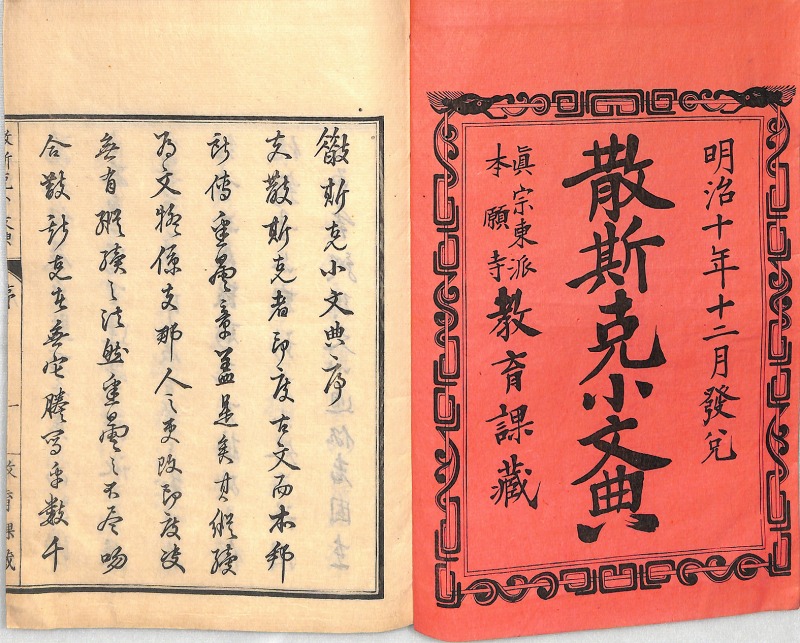 明治十年十二月發兌
散斯克小文典
眞宗東派
本願寺
教育課藏
散斯克小文典序
夫散斯克者印度古文而本邦
所傳悉曇章蓋是矣其縦
為文極係支那人之更改印度
無有縦 之法然悉曇之不尽
合散斯克在 寫手數千
散斯克小文典
序
一
教育課藏